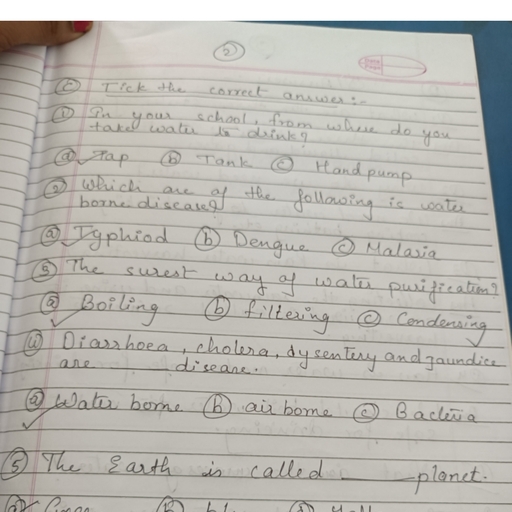 2
C Tick the correct answer:-
1 In your school, from where do you
take water to drink?
a Tap b Tank c Hand pump
2 Which are of the following is water
borne disease?
a Typhiod b Dengue c Malaria
3 The surest way of water purification?
a Boiling b filtering c Condensing
4 Diarrhoea, cholera, dysentery and jaundice
are ____ disease.
a Water borne b air borne c Bacteria
5 The Earth is called ____ planet.